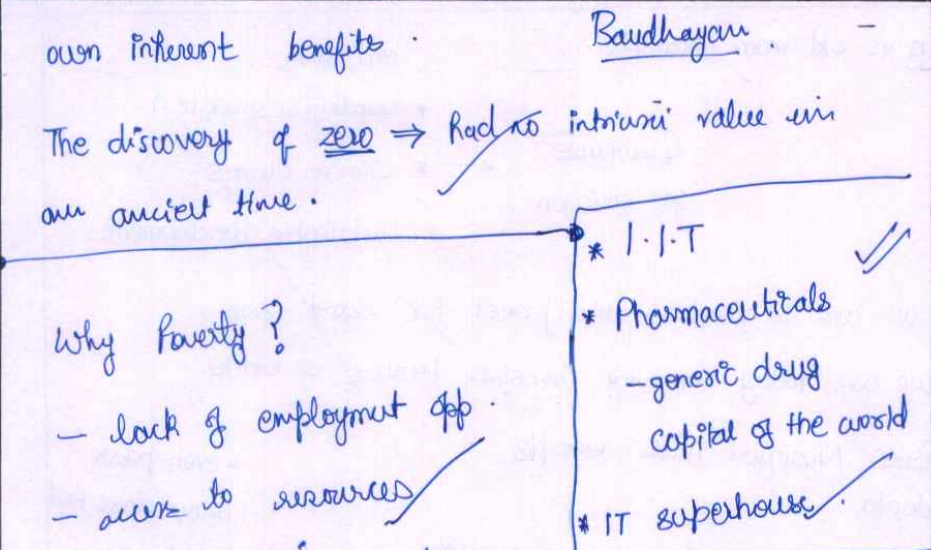 own inherent benefits.
Baudhayan
The discovery of zero ⇒ had no intrinsic value in
an ancient time.
Why Poverty?
– lack of employment opp.
– access to resources
* I.I.T
* Pharmaceuticals
– generic drug
capital of the world
* IT superhouse.